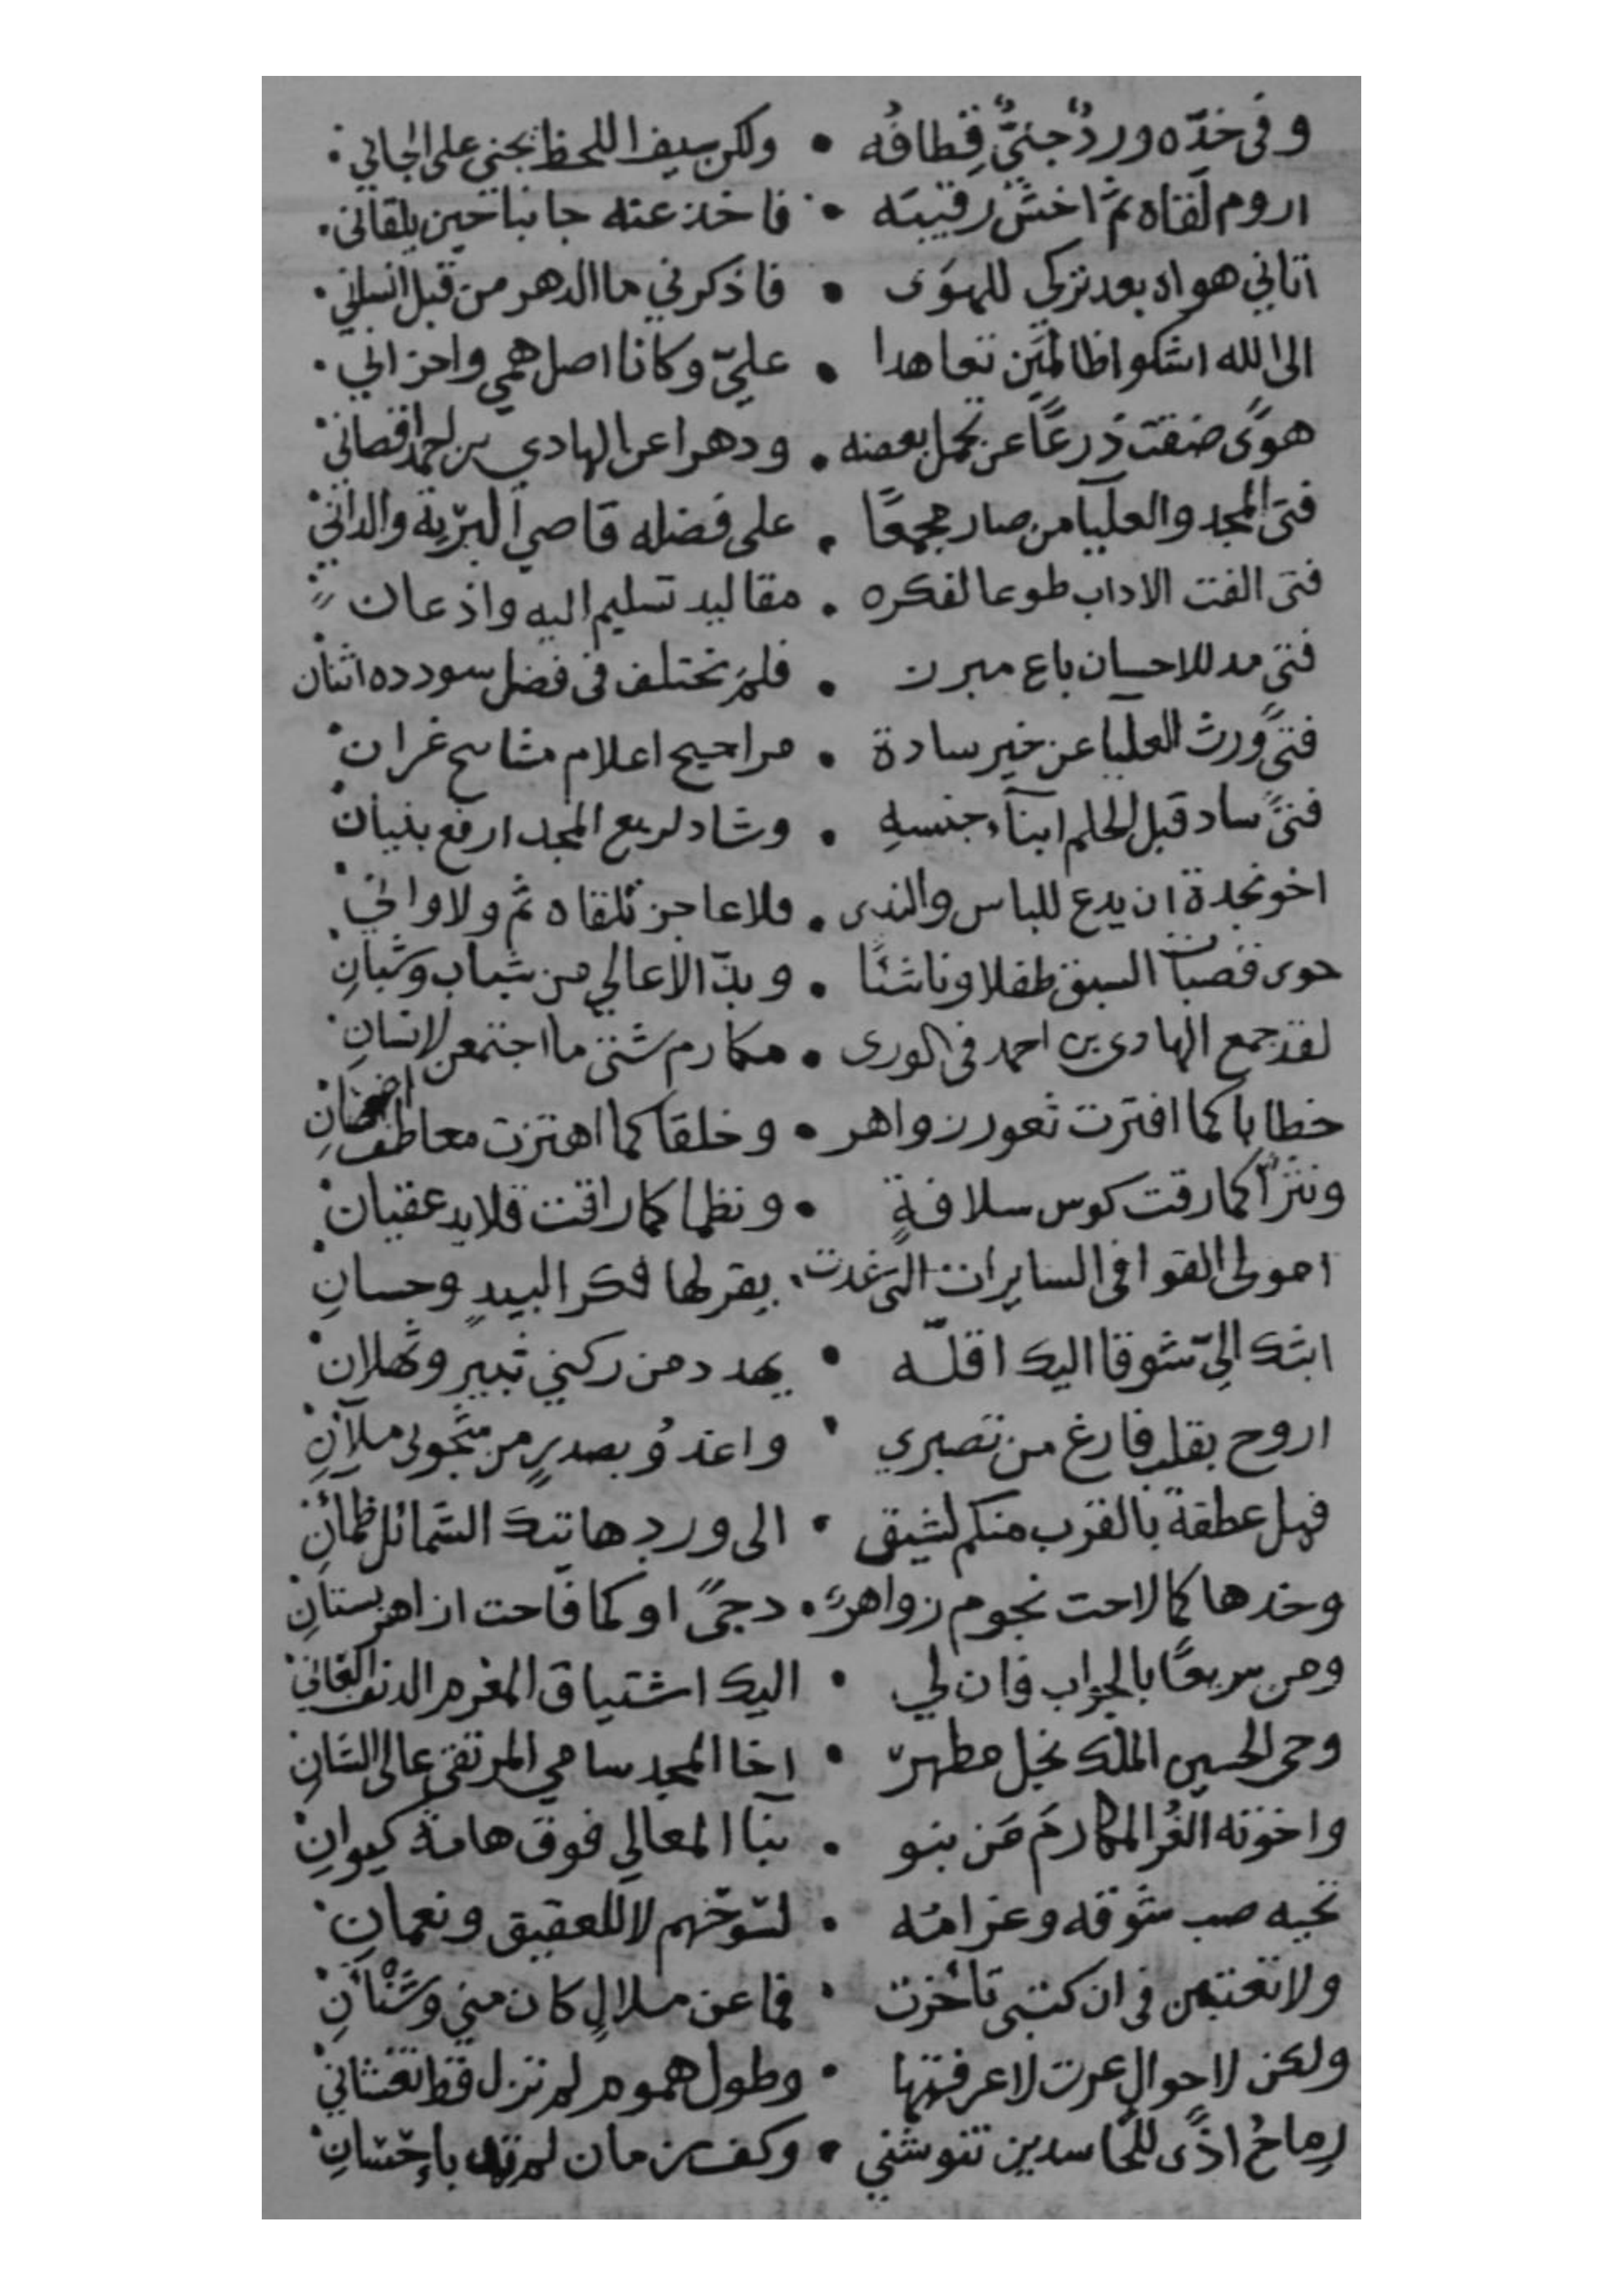 وفى خدّه وردٌ جنيٌّ قِطافُه • ولكن سيف اللحظ يجني على الجاني
اروم لقاه ثم اخشى رقيبه • فاخذ عنه جانبا حين يلقاني
اتاني هواه بعد تركي للهوَى • فاذكرني ما الدهر من قبل انساني
الى الله اشكوا ظالمَين تعاهدا • عليّ وكانا اصل همي واحزاني
هوًى ضقت ذرعًا عن تحمل بعضه • ودهرا عن الهادي بن احمد اقصاني
فتى المجد والعليآ من صار مجمعًا • على فضله قاصي البرّية والداني
فتى الفت الاداب طوعا لفكره • مقاليد تسليم اليه واذعان
فتى مد للاحسان باع مبرز • فلم تختلف فى فضل سودده اثنان
فتىً ورث العليا عن خير سادة • مراجيح اعلام مشامخ غران
فتىً ساد قبل الحلم ابنآء جنسهِ • وشاد لربع المجد ارفع بنيان
اخو نجدة ان يدع للباس والندى • فلا عاجز تلقاه ثم ولا واني
حوى قصبات السبق طفلا وناشئًا • وبذّ الاعالي من شباب وشبانِ
لقد جمع الهادي بن احمد فى الورى • مكارم شتى ما اجتمعن لانسانِ
خطابا كما افترت ثغور زواهر • وخلقا كما اهتزت معاطف اغصانِ
ونثرًا كما رقت كوس سلافةٍ • ونظما كما راقت قلايد عقيان
امولى القوافى السايرات التى غدت • يقر لها فكر البيدٍ وحسانِ
ابثك الىّ شوقا اليك اقلّه • يهدد من ركني ثبيرٍ وثهلان
اروح بقلب فارغ من تصبري • واغدوُ بصدرٍ من شجونى ملآنِ
فهل عطفة بالقرب منكم لشيق • الى ورد هاتيك الشمائل ظمآنِ
وخذها كما لاحت نجوم زواهرٌ • دجىً او كما فاحت ازاهر بستانِ
ومن سريعًا بالجواب فان لي • اليك اشتياق المغرم الدنف العاني
وحى الحسين الملك نجل مطهرّ • اخا المجد سامي المرتقى عالى الشانِ
واخوته الغُر المكارمَ مَن بنو • بنآ المعالي فوق هامة كيوانِ
تحيه صب شوقه وغرامُه • لسَوحهم لا للعقيق ونعمانِ
ولا تعتبن فى ان كتبى تأخرت • فما عن ملالٍ كان مني وشَنْآنِ
ولكن لاحوالٍ عرت لا عرفتها • وطول هموم لم تزل قط تغشاني
رِماحُ اذًى للحاسدين تنوشني • وكف زمان لم تهد بإحسانِ